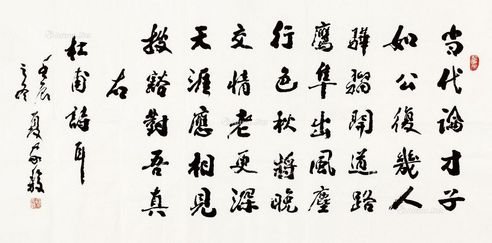 當代論才子
如公復幾人
驊騮開道路
鷹隼出風塵
行色秋將晚
交情老更深
天涯應相見
披豁對吾真
右
杜甫詩
壬辰
之冬 夏